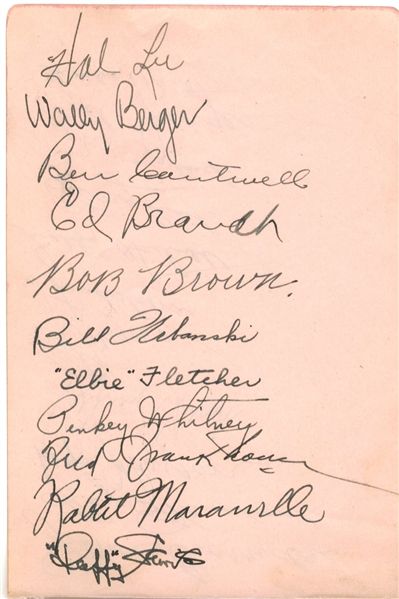 Hal Lee
Wally Berger
Ben Cantwell
Ed Brandt
Bob Brown.
Bill Urbanski
"Elbie" Fletcher
Pinkey Whitney
Fred Frankhouse
Rabbit Maranville
"Deffy" Lewis